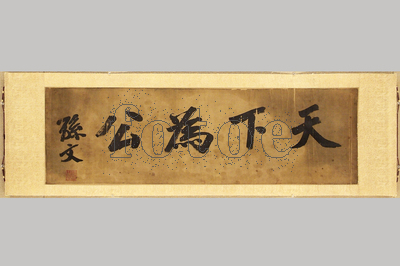 天下為公
孫文
fotoe